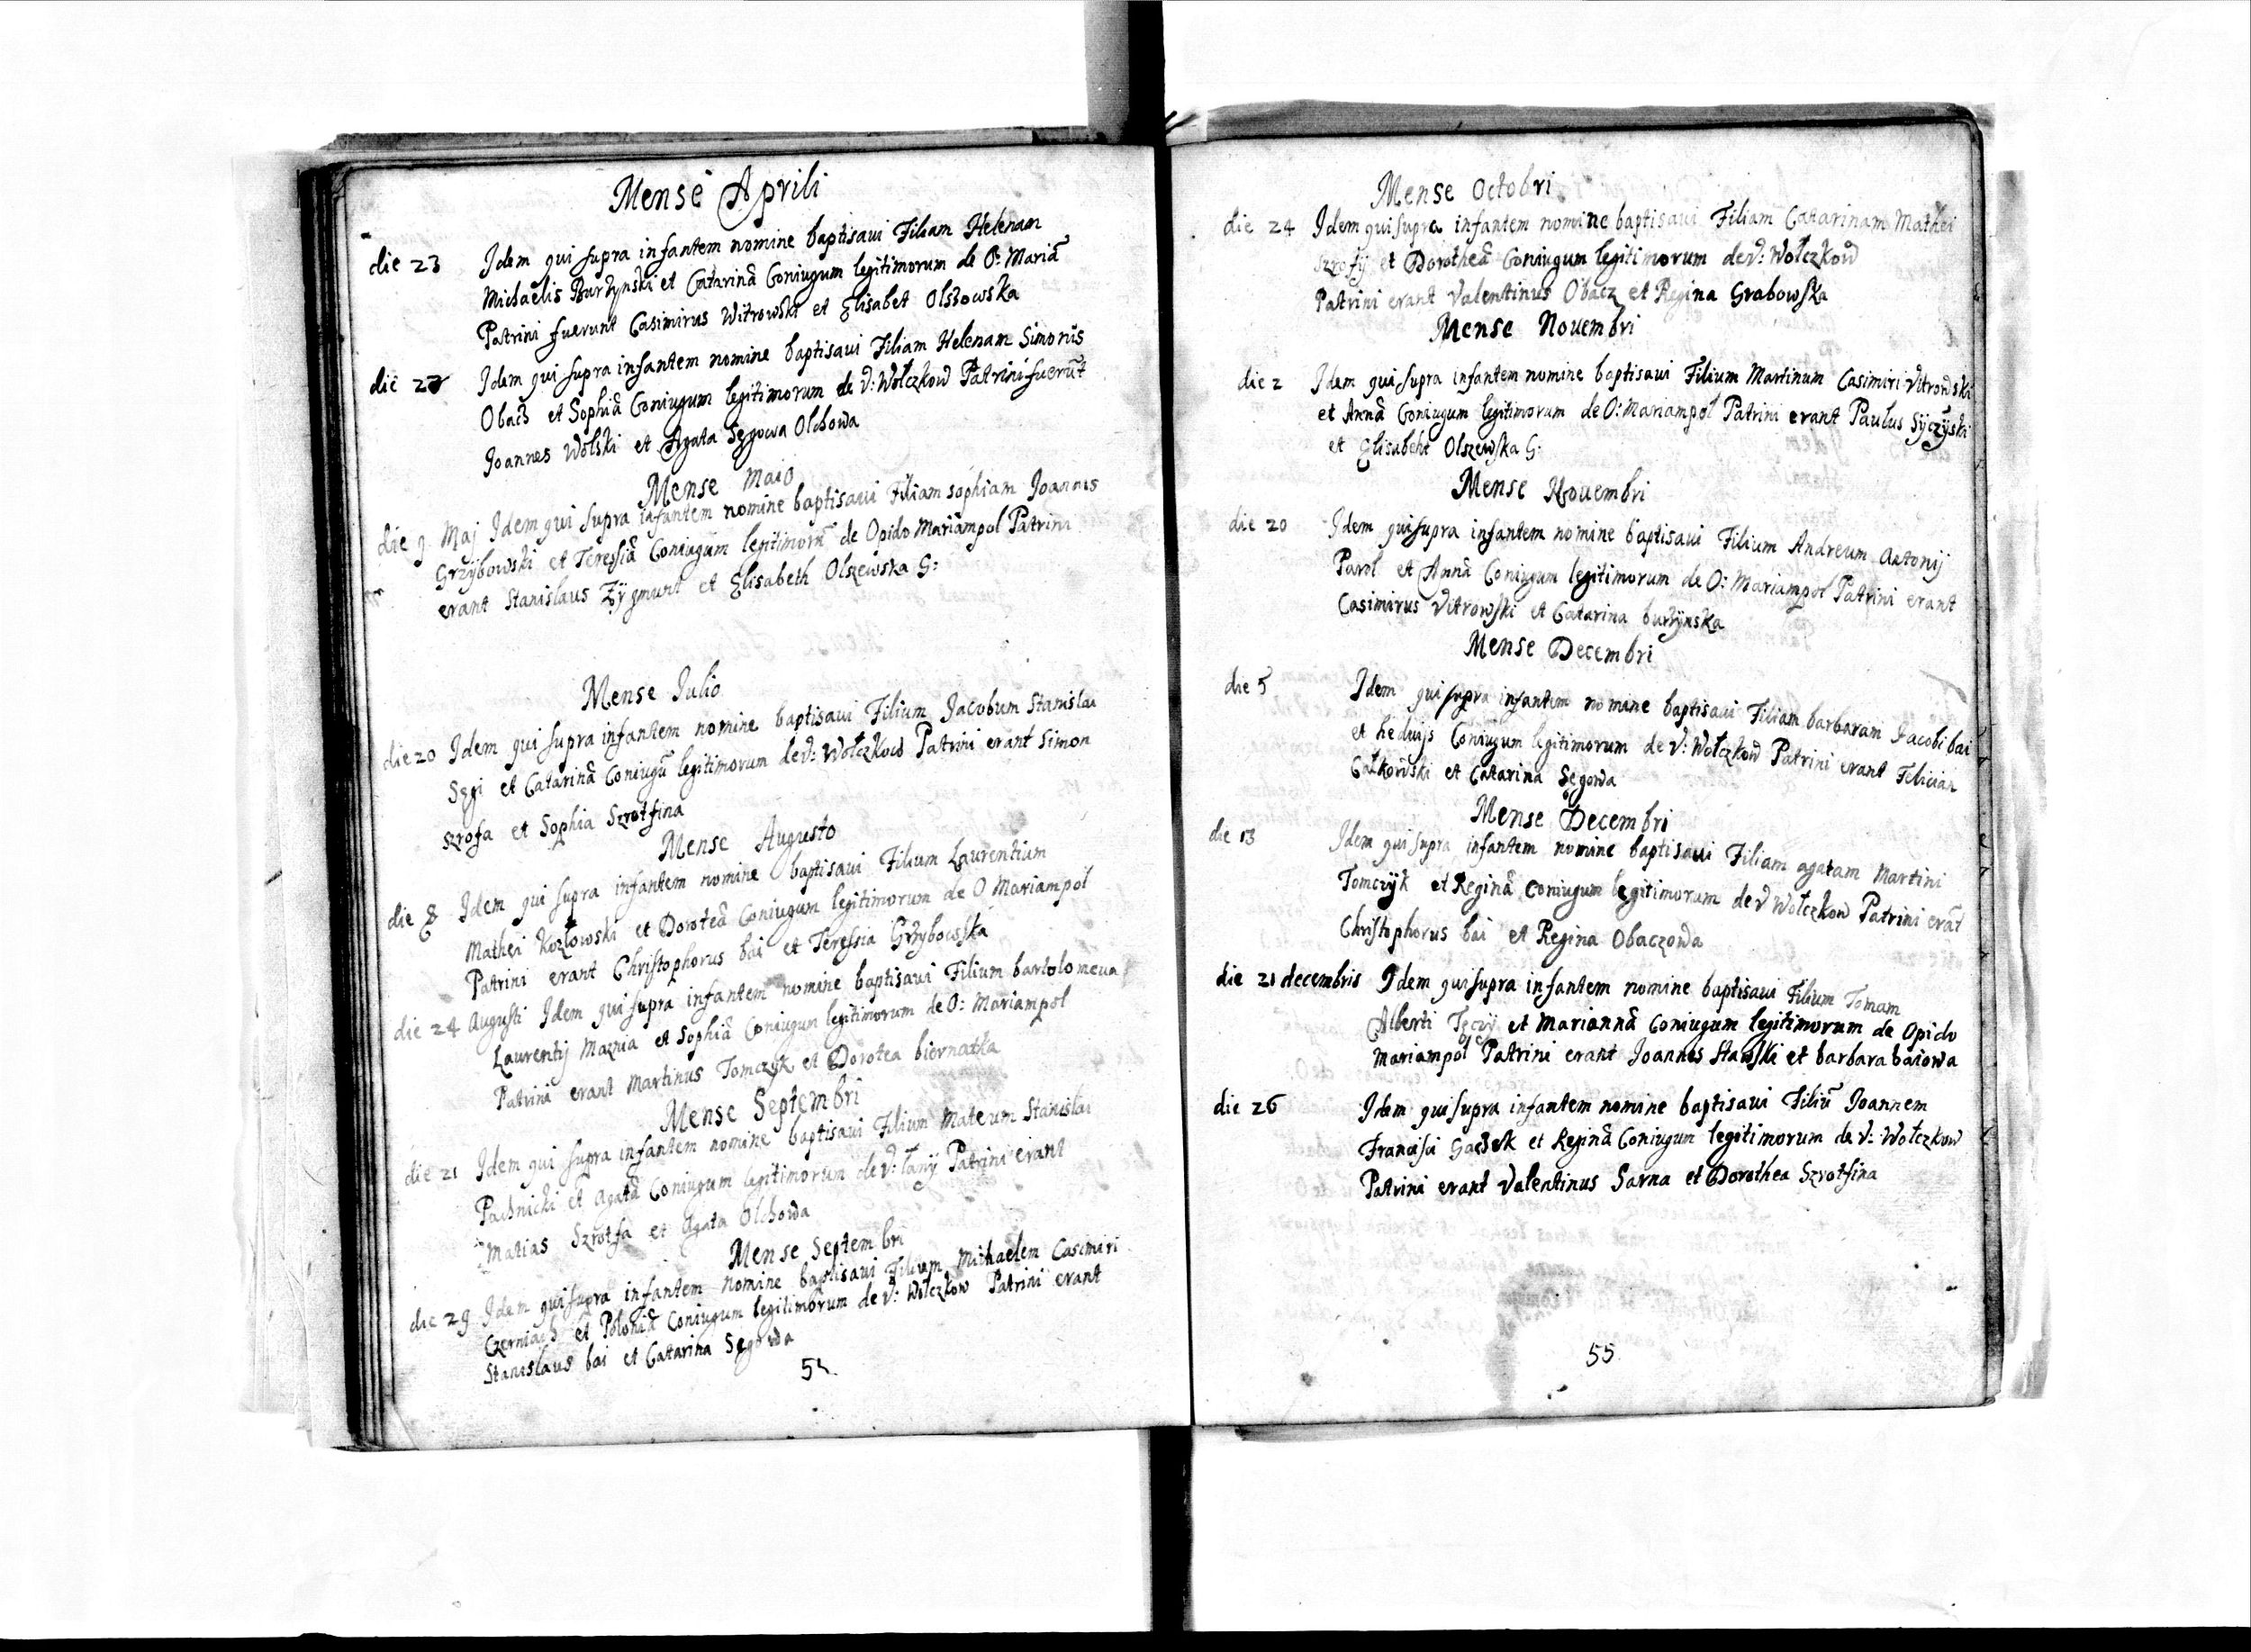 Mense Aprili
die 23 Idem qui supra infantem nomine baptisavi Filiam Helenam
Michaelis Burzynski et Catarinā Coniugum legitimorum de O: Mariā
Patrini fuerunt Casimirus Witrowski et Elisabet Olszowska
die 27 Idem qui supra infantem nomine baptisavi Filiam Helenam Simonis
Obacz et Sophiā Coniugum legitimorum de V: Wołczkow Patrini fuerūt
Joannes Wolski et Agata Sęgowa Olchowa
Mense Maio
die 9 Maj Idem qui supra infantem nomine baptisavi Filiam Sophiam Joannis
Grzybowski et Teressiā Coniugum legitimorū de Opido Mariampol Patrini
erant Stanislaus Zygmunt et Elisabeth Olszewska G:
Mense Julio
die 20 Idem qui supra infantem nomine baptisavi Filium Jacobum Stanislai
Sęgi et Catarinā Coniugū legitimorum de V: Wołczkow Patrini erant Simon
Szrofa et Sophia Szrotfina
Mense Augusto
die 8 Idem qui supra infantem nomine baptisavi Filium Laurentium
Mathei Kozłowski et Doroteā Coniugum legitimorum de O Mariampol
Patrini erant Christophorus bai et Teressia Grzybowska
die 24 Augusti Idem qui supra infantem nomine baptisavi Filium bartolomeum
Laurentij Maznia et Sophiā Coniugum legitimorum de O: Mariampol
Patrini erant Martinus Tomczyk et Dorotea biernatka
Mense Septembri
die 21 Idem qui supra infantem nomine baptisavi Filium Mateum Stanislai
Pachnicki et Agatā Coniugum legitimorum de V: Łany Patrini erant
Matias Szrotfa et Agata Olchowa
Mense Septembri
die 29 Idem qui supra infantem nomine baptisavi Filium Michaelem Casimiri
Czerniach et Poloniā Coniugum legitimorum de V: Wołczkow Patrini erant
Stanislaus bai et Catarina Sęgowa
Mense Octobri
die 24 Idem qui supra infantem nomine baptisavi Filiam Catarinam Mathei
Szrofij et Dorotheā Coniugum legitimorum de V: Wołczkow
Patrini erant Valentinus Obacz et Regina Grabowska
Mense Novembri
die 2 Idem qui supra infantem nomine baptisavi Filium Martinum Casimiri Vitrowski
et Annā Coniugum legitimorum de O: Mariampol Patrini erant Paulus Syczyski
et Elisabeht Olszewska G:
Mense Novembri
die 20 Idem qui supra infantem nomine baptisavi Filium Andreum Antonij
Parol et Annā Coniugum legitimorum de O: Mariampol Patrini erant
Casimirus Vitrowski et Catarina burzynska
Mense Decembri
die 5 Idem qui supra infantem nomine baptisavi Filiam barbaram Jacobi bai
et hedvijs Coniugum legitimorum de V: Wołczkow Patrini erant Felician
Całkowski et Catarina Sęgowa
Mense Decembri
die 13 Idem qui supra infantem nomine baptisavi Filiam agatam Martini
Tomczyk et Reginā Coniugum legitimorum de V Wołczkow Patrini erāt
Christophorus bai et Regina Obaczowa
die 21 decembris Idem qui supra infantem nomine baptisavi Filium Tomam
Alberti Tęczy et Mariannā Coniugum legitimorum de Opido
Mariampol Patrini erant Joannes Stawski et barbara baiowa
die 26 Idem qui supra infantem nomine baptisavi Filiū Joannem
Francisci Gacek et Reginā Coniugum legitimorum de V: Wołczkow
Patrini erant Valentinus Sarna et Dorothea Szrotfina
55